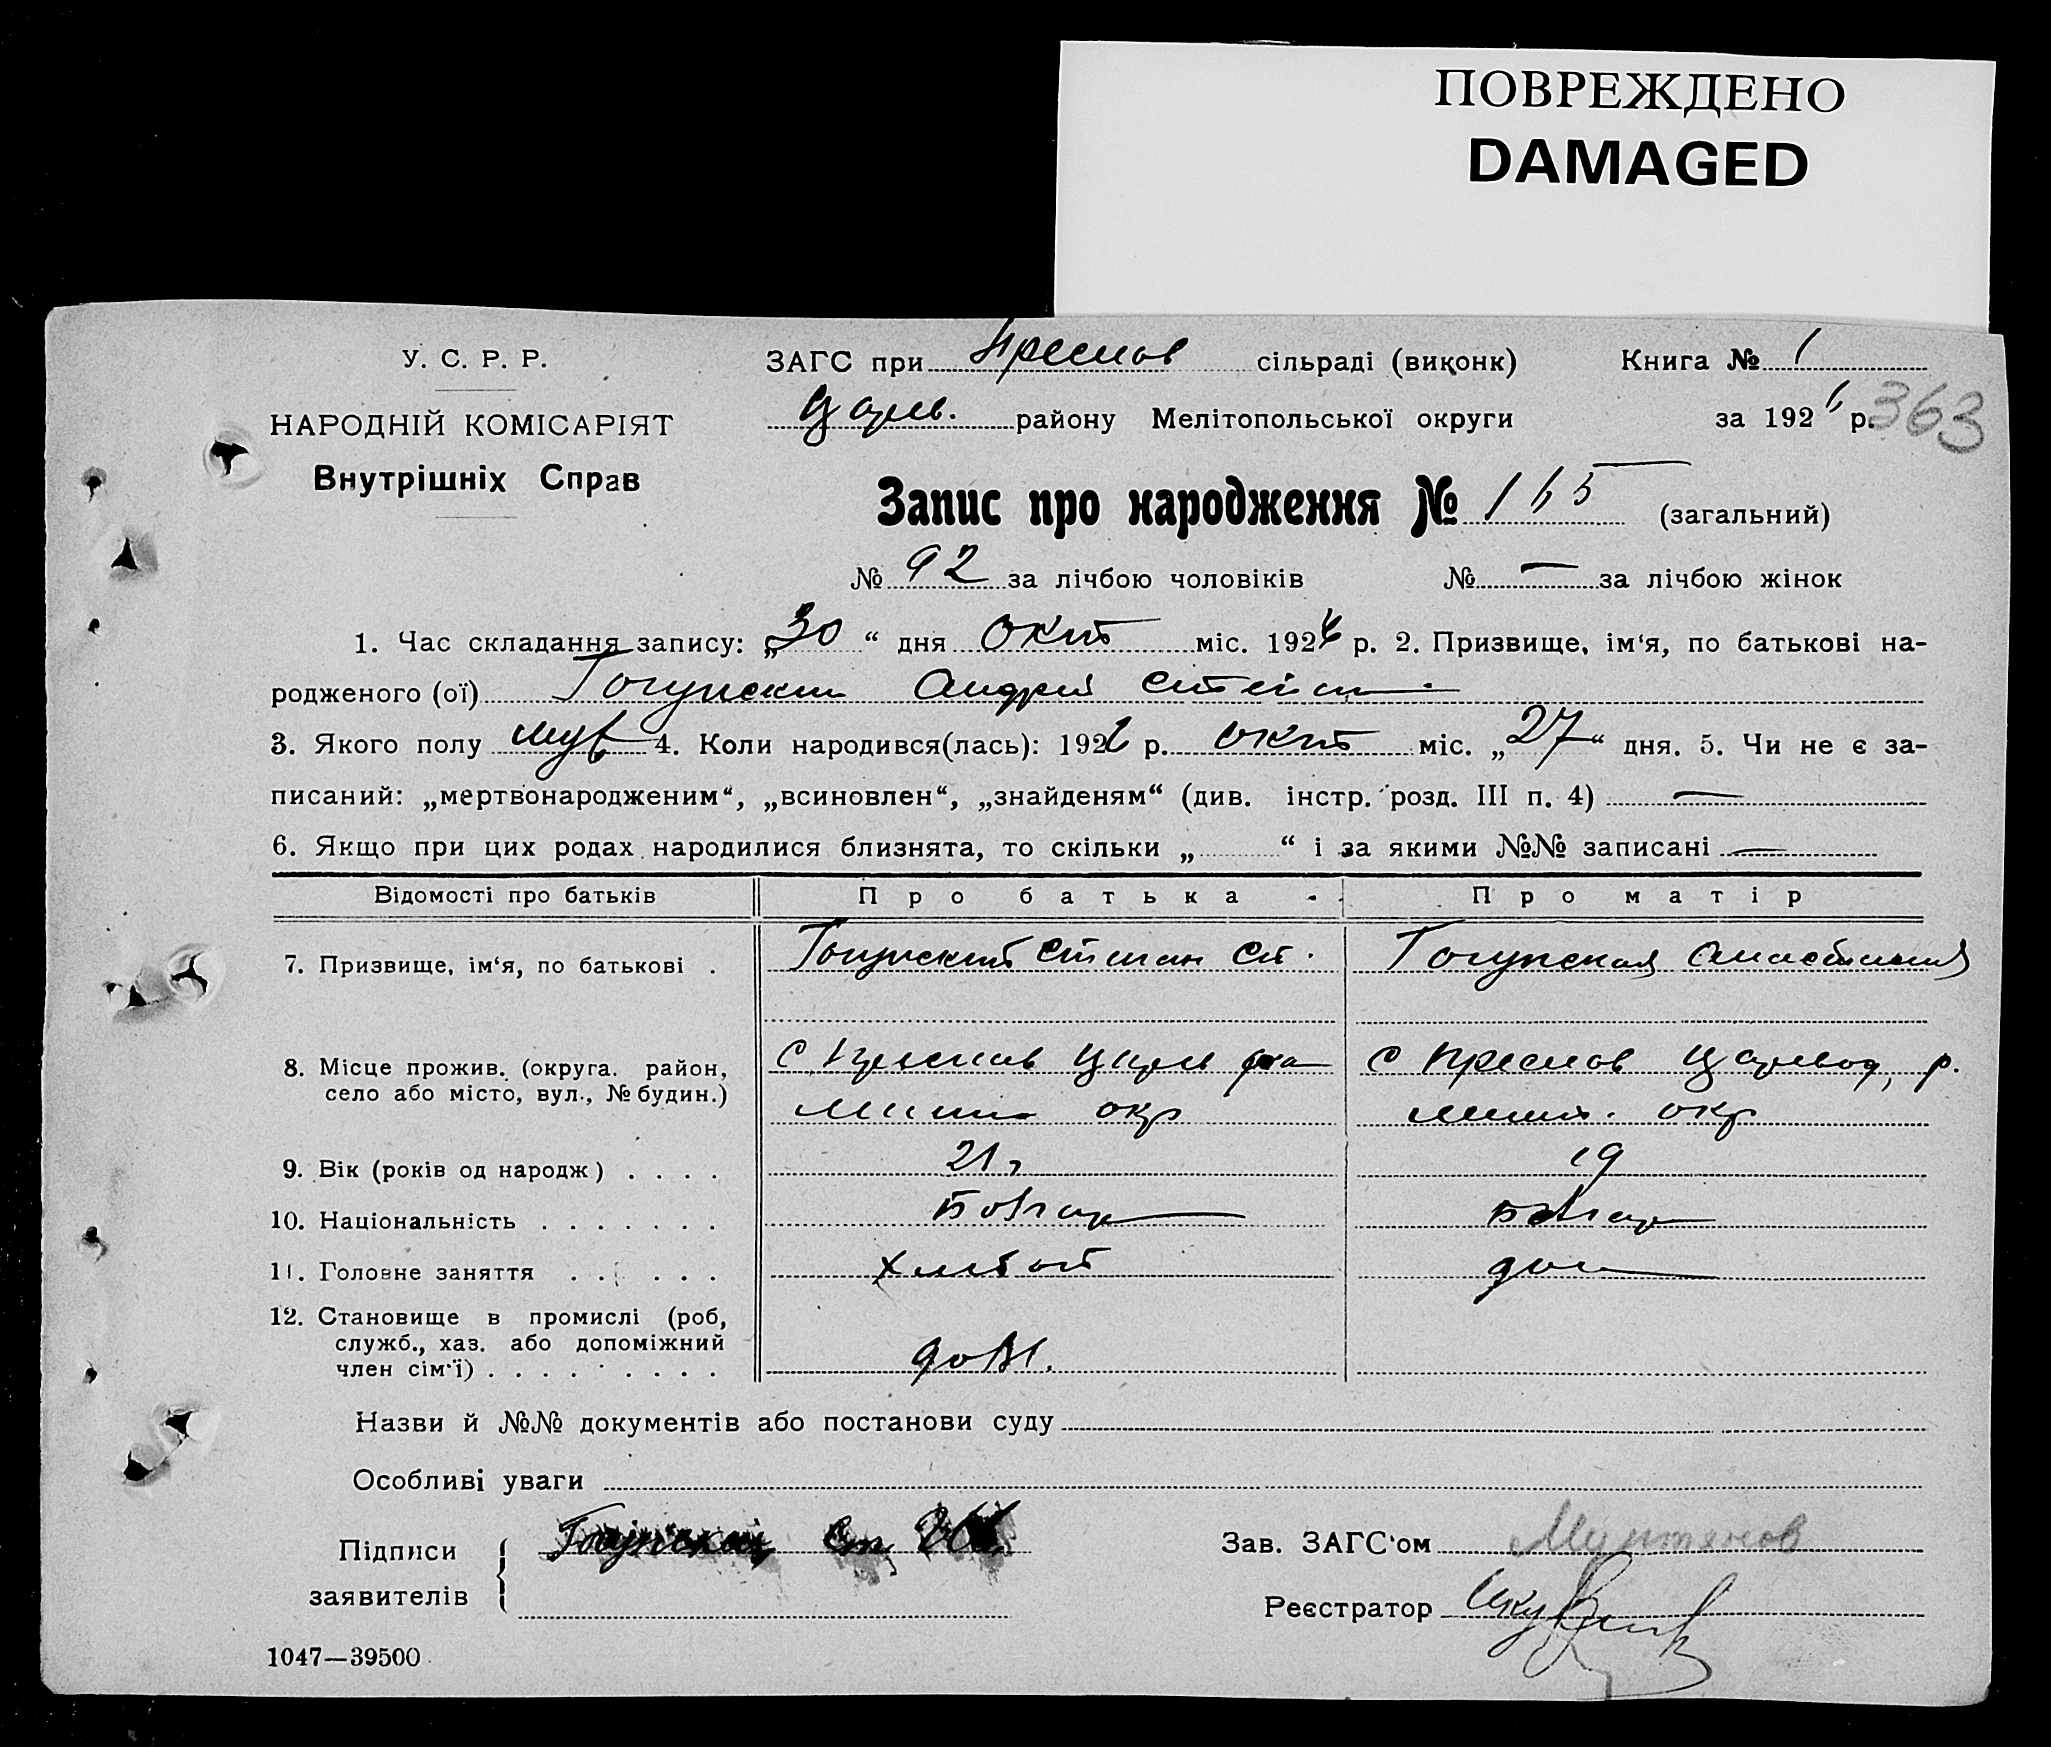 ПОВРЕЖДЕНО
DAMAGED
У. С. Р. Р.
НАРОДНІЙ КОМІСАРІЯТ
Внутрішніх Справ
ЗАГС при Преслов сільраді (виконк) Книга № 1
Царев. району Мелітопольської округи за 1926 р.
363
Запис про народження № 165 (загальний)
№ 92 за лічбою чоловіків № — за лічбою жінок
1. Час складання запису: „30“ дня окт міс. 1926 р. 2. Призвище, ім‘я, по батькові на-
родженого (ої) Гогунский Андрей
3. Якого полу муж 4. Коли народився(лась): 1926 р. окт міс. „27“ дня. 5. Чи не є за-
писаний: „мертвонародженим“, „всиновлен“, „знайденям“ (див. інстр. розд. III п. 4) —
6. Якщо при цих родах народилися близнята, то скільки „ “ і за якими №№ записані —
Відомості про батьків Про батька Про матір
7. Призвище, ім‘я, по батькові . Гогунский Степан Ст. Гогунская Анастасия
8. Місце прожив. (округа. район, С Преслав Царев р-на С Преслов Царевод, р.
село або місто, вул., № будин.) Мелит окр мелит. окр
9. Вік (років од народж) . . . . 21 19
10. Національність . . . . . . . Болгар Болгар
11. Головне заняття . . . . . . Хлебоп дом
12. Становище в промислі (роб,
служб., хаз. або допоміжний
член сім‘ї) . . . . . . . .
Назви й №№ документів або постанови суду
Особливі уваги
Підписи Гогунский Ст Зав. ЗАГС‘ом Мунтянов
заявителів Реєстратор
1047—39500